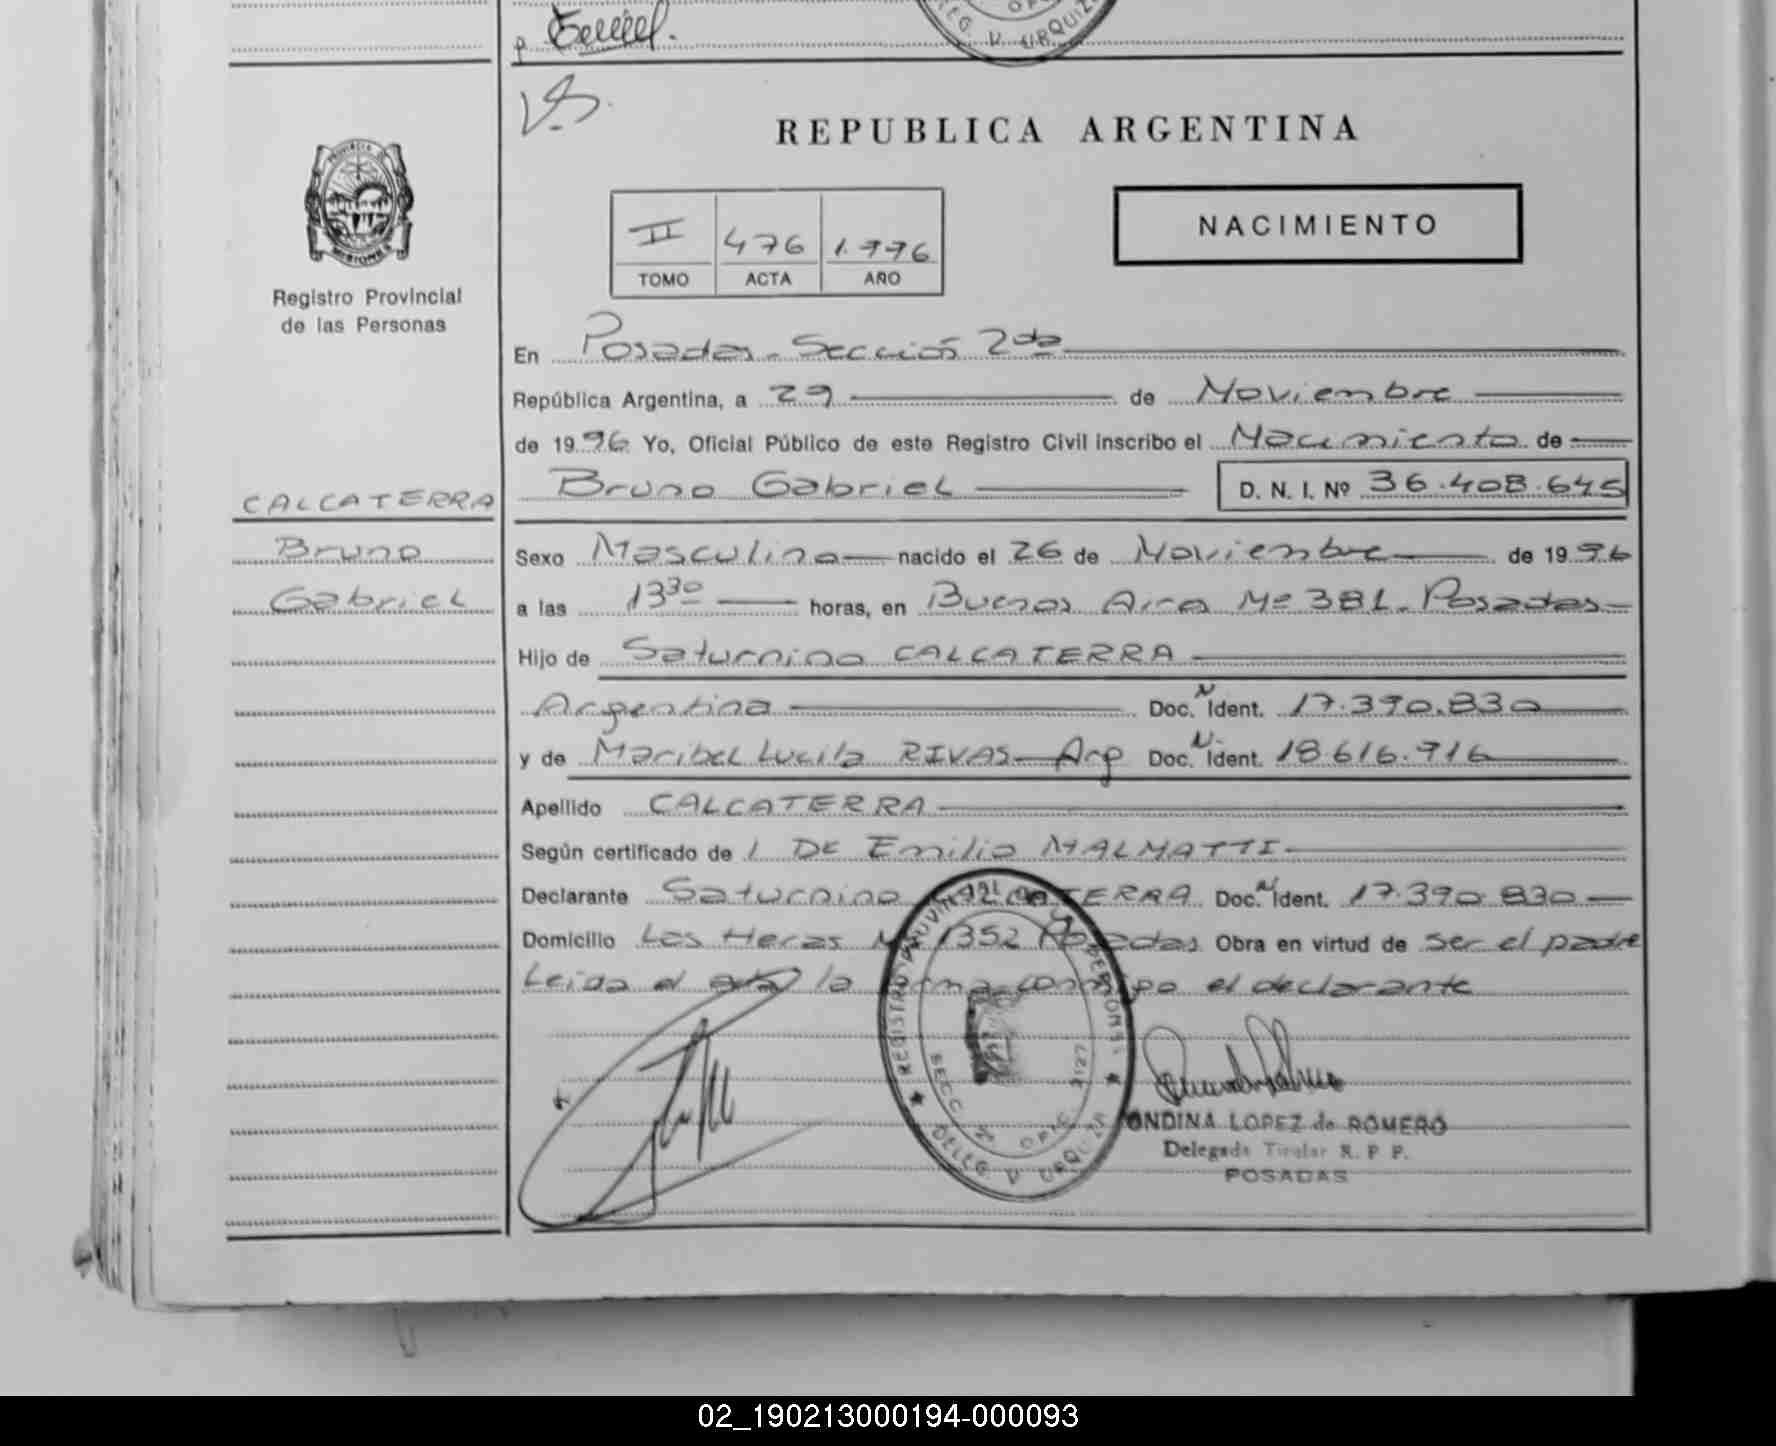 REPUBLICA ARGENTINA
PROVINCIA DE
MISIONES
Registro Provincial
de las Personas
NACIMIENTO
II 476 1.996
TOMO ACTA AÑO
En Posadas - Sección 2da
República Argentina, a 29 de Noviembre
de 1996 Yo, Oficial Público de este Registro Civil inscribo el Nacimiento de
CALCATERRA
Bruno Gabriel D. N. I. Nº 36.408.645
Bruno
Gabriel
Sexo Masculino nacido el 26 de Noviembre de 1996
a las 13³⁰ horas, en Buenos Aires Nº 381 - Posadas
Hijo de Saturnino CALCATERRA
Argentina Doc. N Ident. 17.390.830
y de Maribel Lucila RIVAS - Arg Doc. N. Ident. 18.616.916
Apellido CALCATERRA
Según certificado de 1 DE Emilia MALMATTI
Declarante Saturnino CALCATERRA Doc. N Ident. 17.390.830
Domicilio Las Heras Nº 1352 Posadas Obra en virtud de ser el padre
Leida el acta la firma conmigo el declarante
REGISTRO PROVINCIAL DE LAS PERSONAS
SECC 2ª OFIC. 3127
DELEG. V. URQUIZA
ONDINA LOPEZ de ROMERO
Delegada Titular R. P. P.
POSADAS
DELEG. V. URQUIZA
02_190213000194-000093